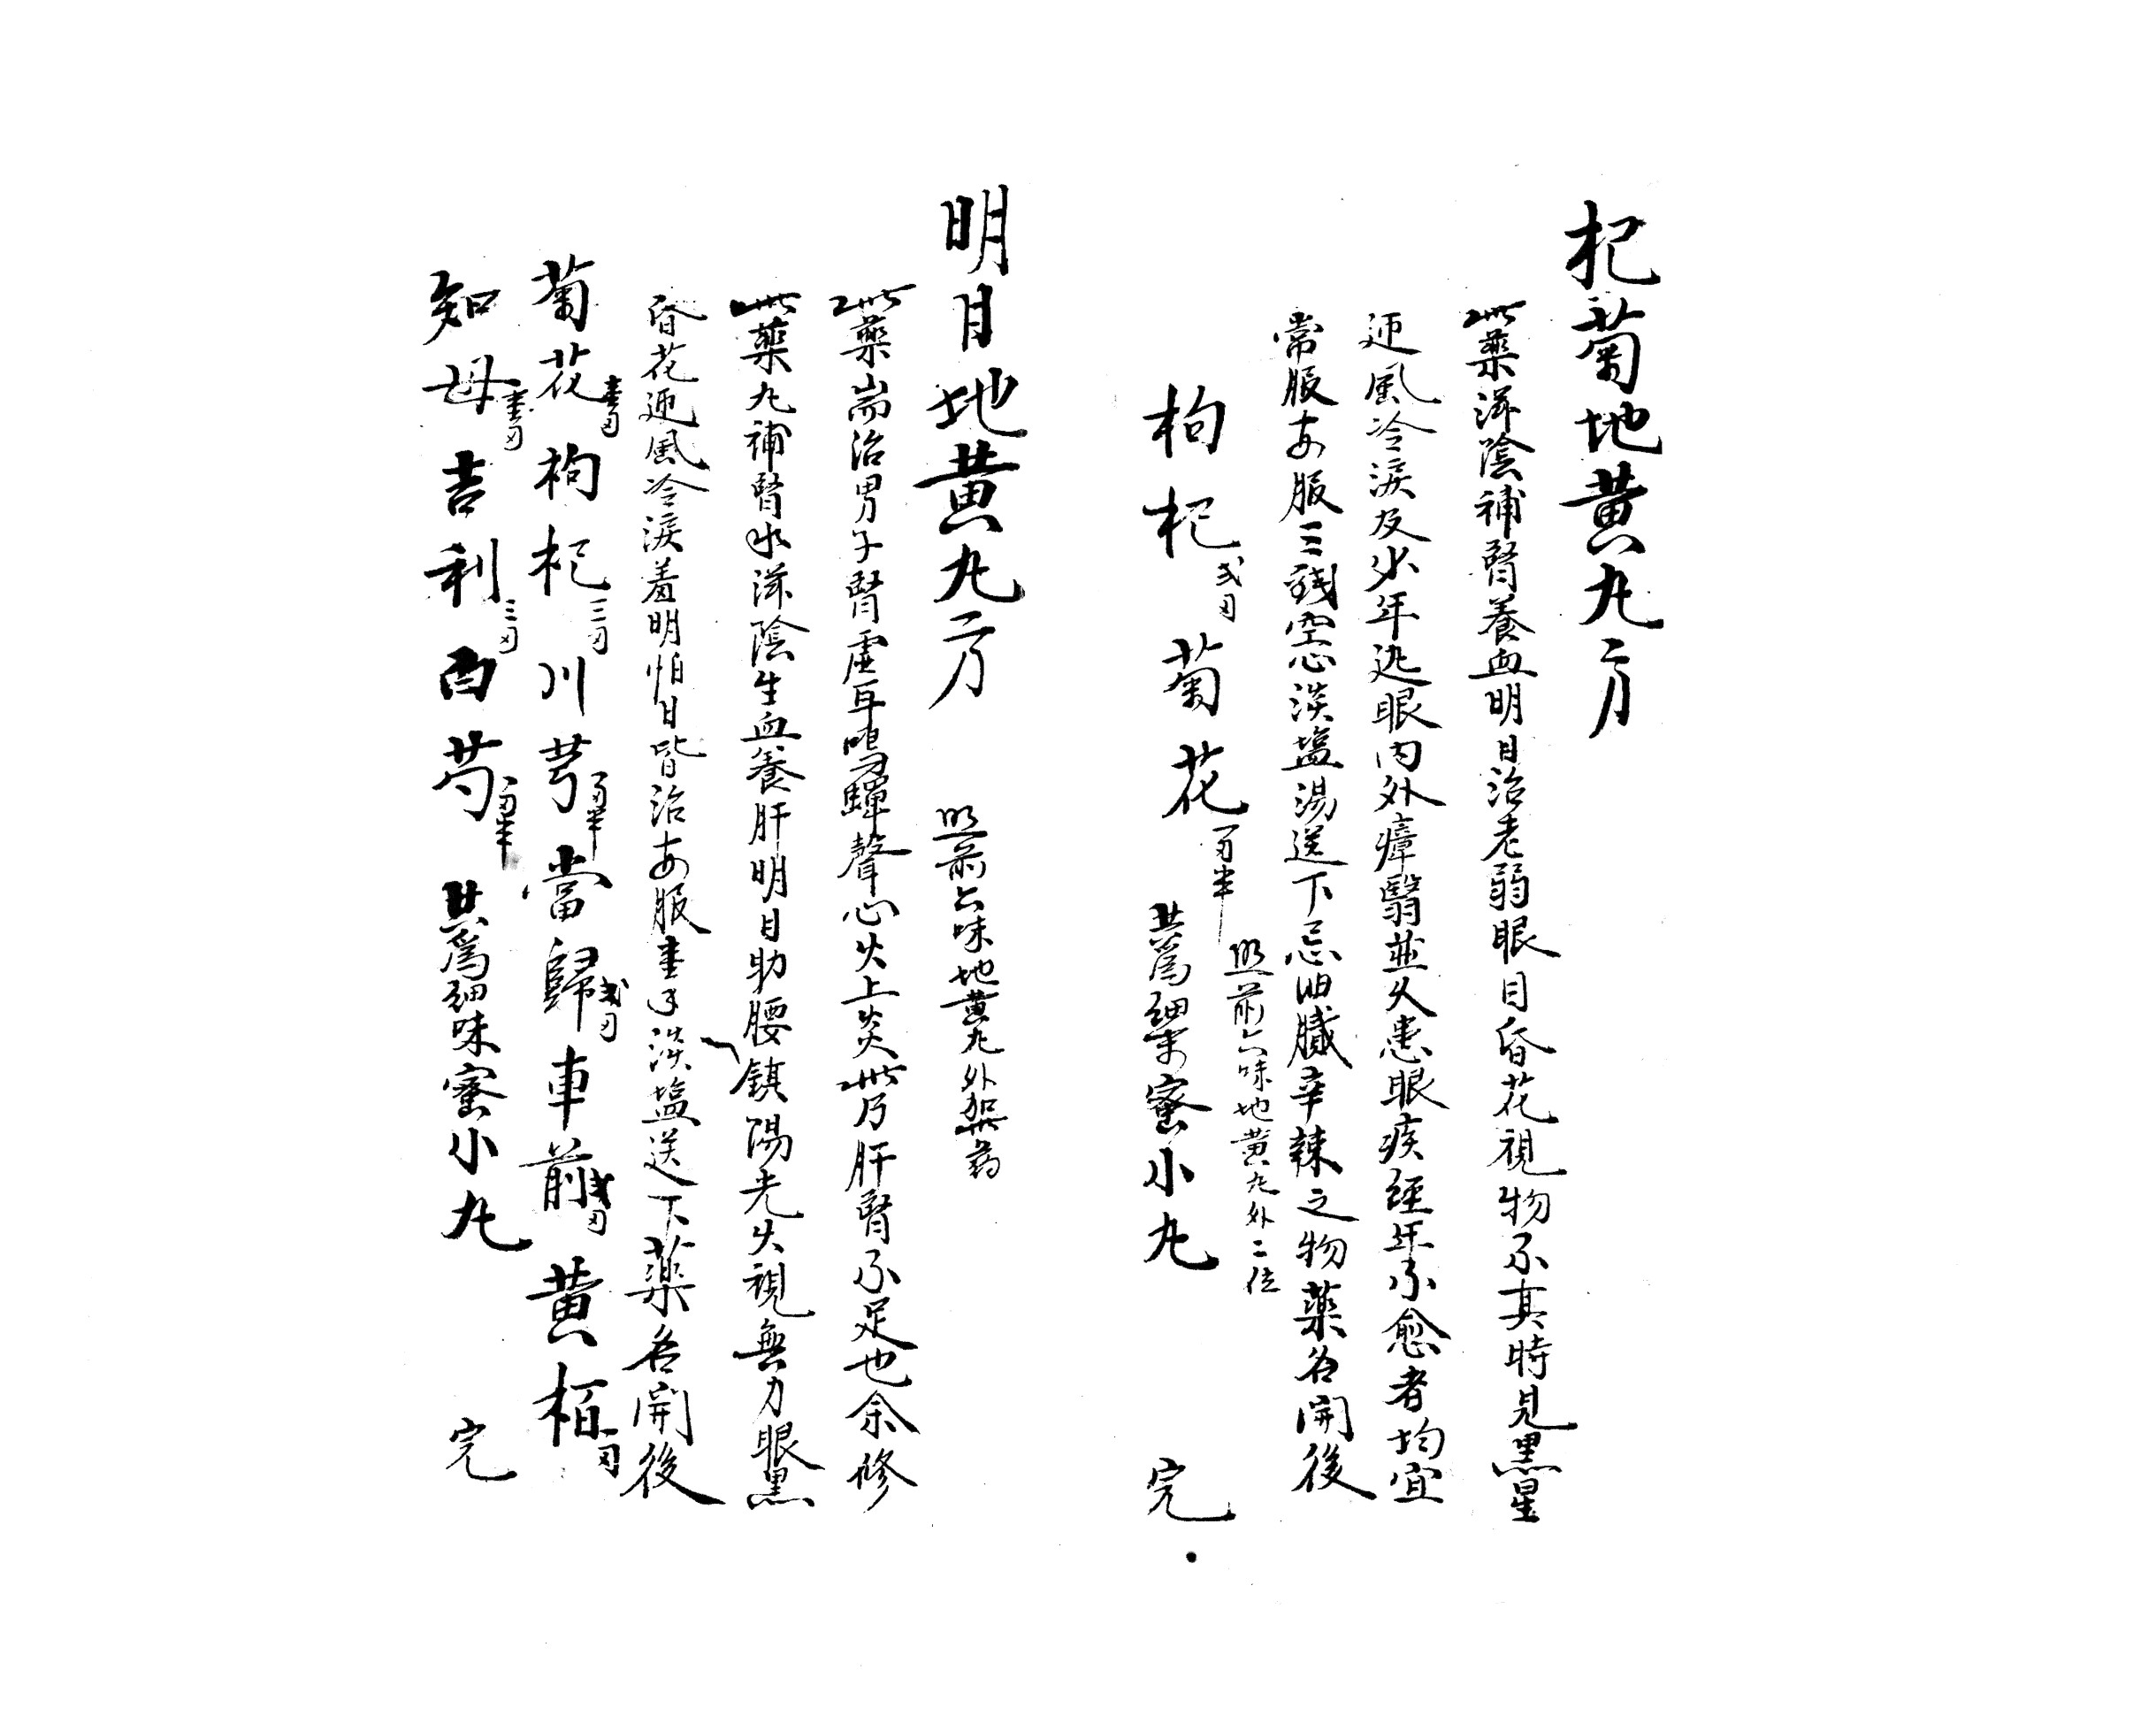 杞菊地黄丸方
此藥滋陰補腎養血明目治老弱眼目昏花視物不真時見黑星
迎風冷淚及少年迯眼内外瘴翳並久患眼疾經年不愈者均宜
常服每服三錢空心淡盐湯送下忌油膩辛辣之物藥名開後
照前六味地黄丸外二位
枸杞弍刄 菊花一刄半 共爲細末蜜小丸 完
明目地黄丸方 照前六味地黄丸外架药
此藥耑治男子腎虛耳鳴蟬聲心火上炎此乃肝腎不足也余修
此藥丸補腎水滋陰生血養肝明目助腰鎮陽光失視無力眼黑
昏花迎風冷淚羞明怕日皆治每服 淡盐送下藥名開後
菊花 枸杞三刄 川芎一刄半 當歸弍刄 車前弍刄 黄栢一刄
知母 吉利三刄 白芍一刄半 共爲細味蜜小丸 完